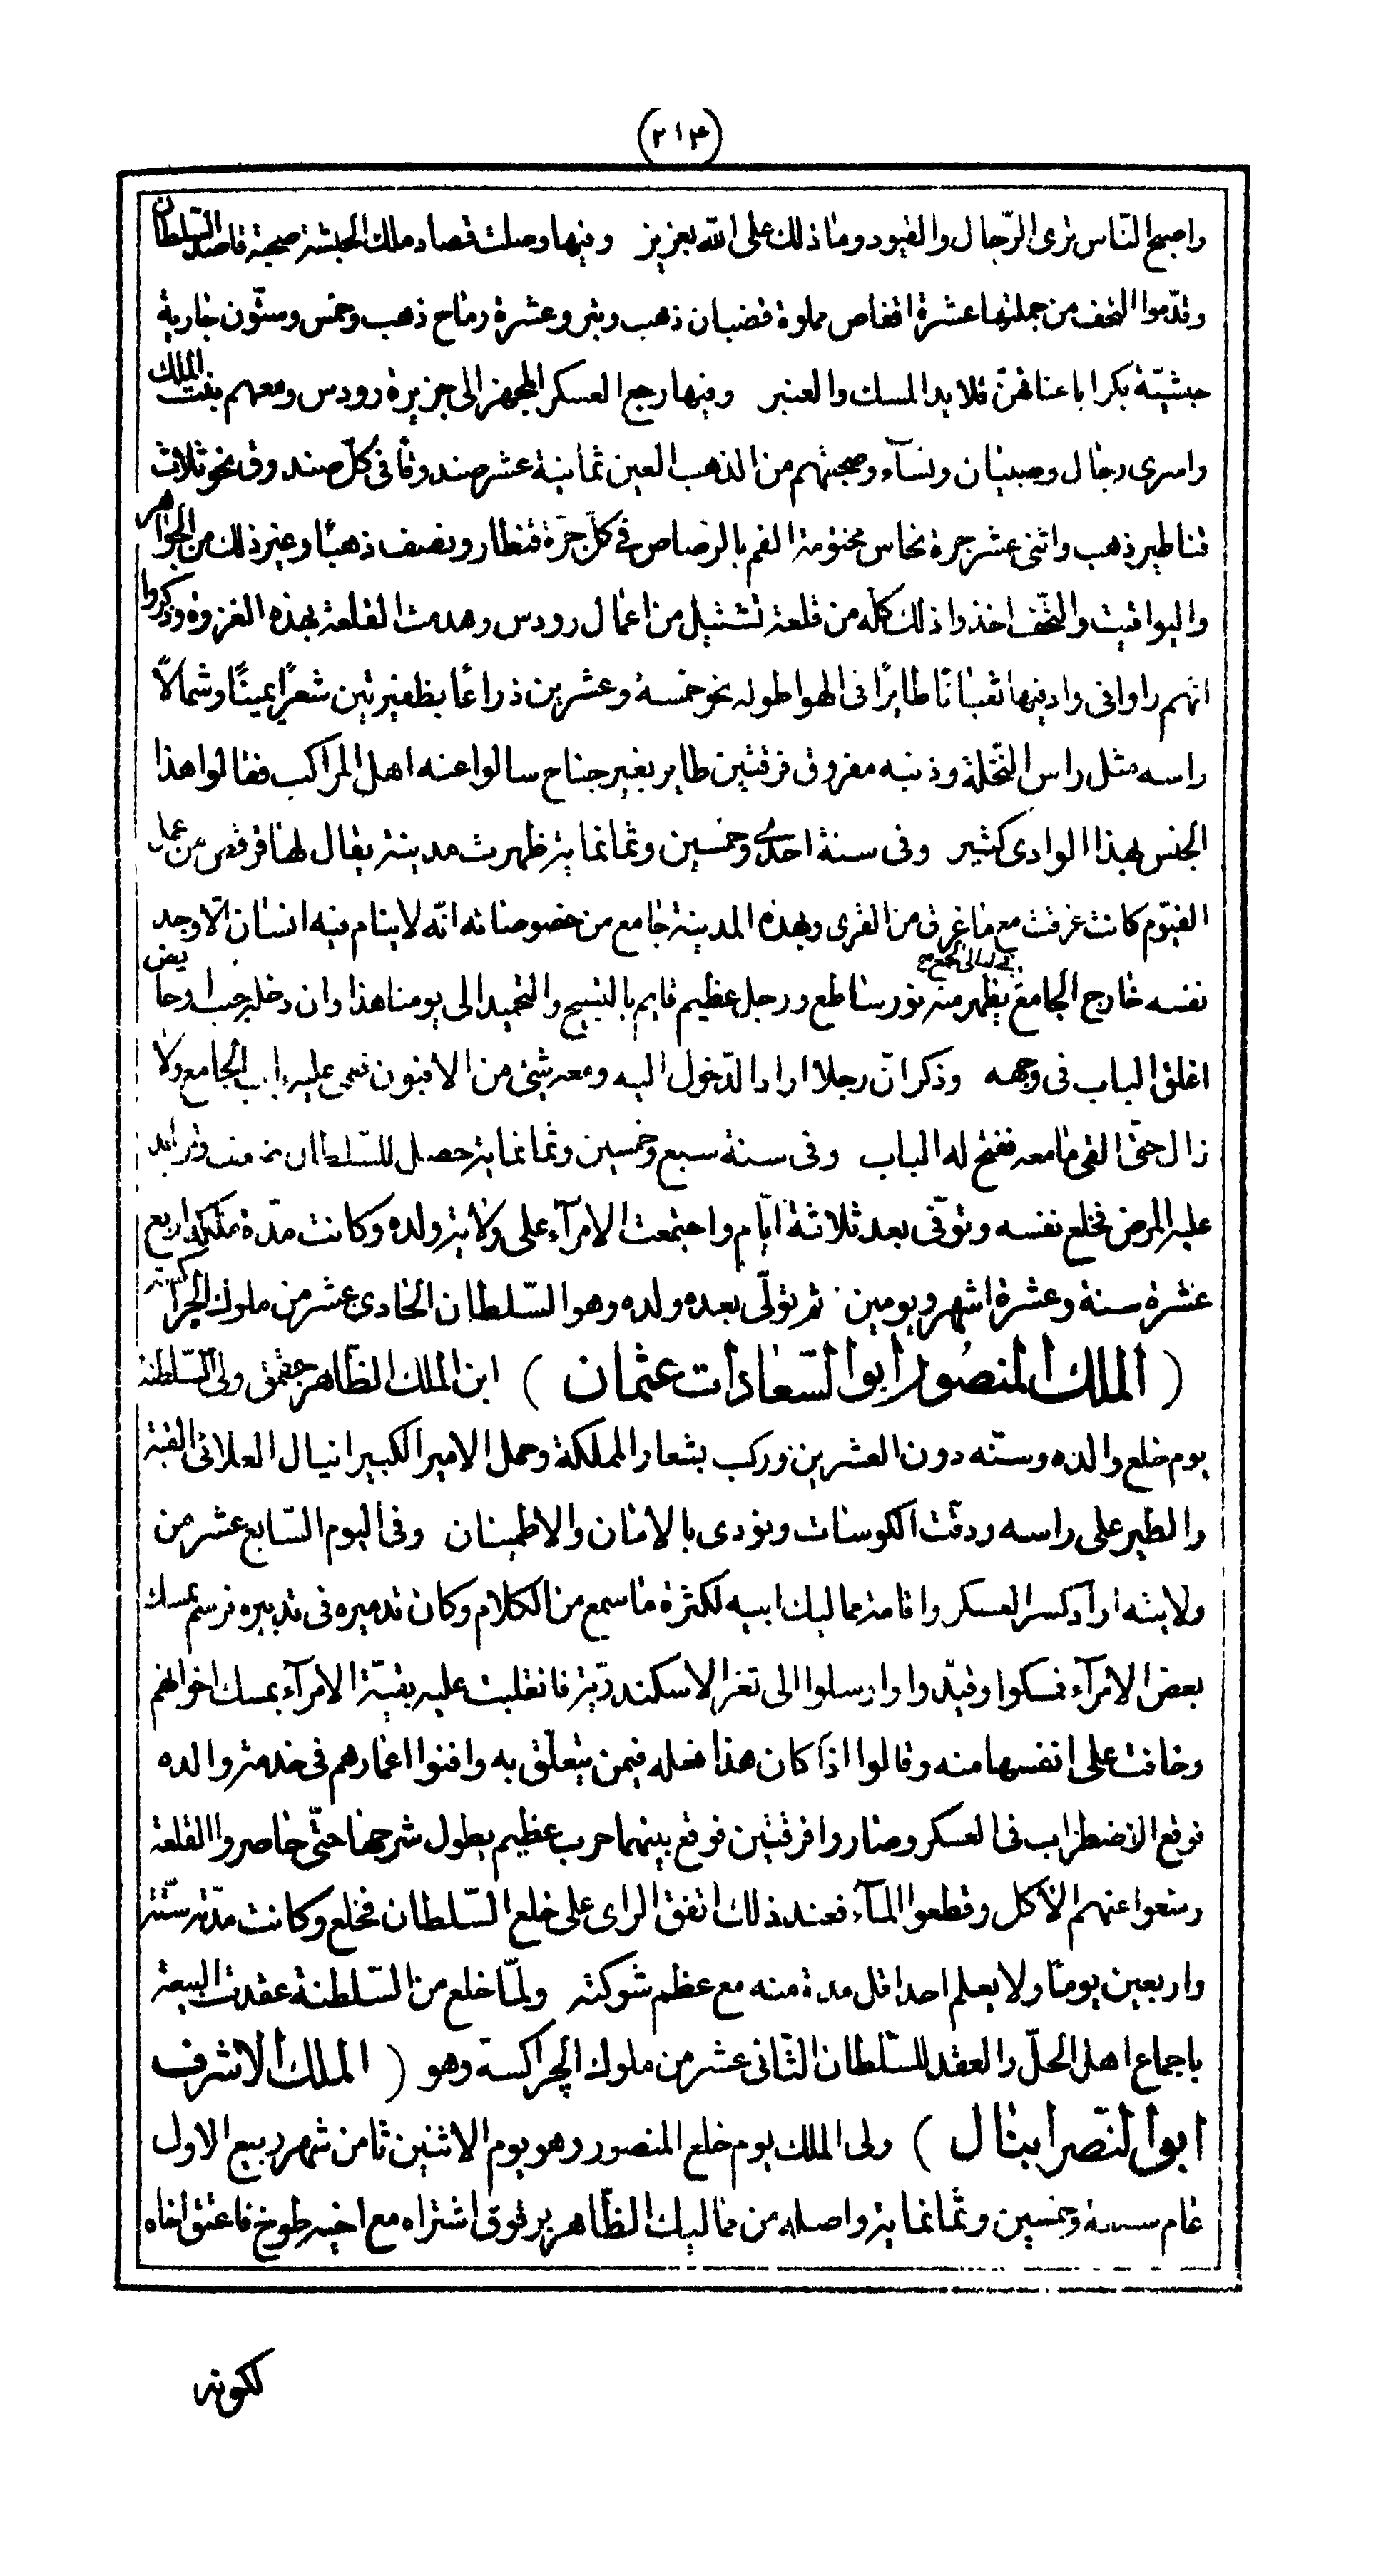 (٢١٣)
واصبح النّاس ترى الرّجال والقيود وما ذلك على اللّه بعزيز وفيها وصلت قصاد ملك الحبشة صحبة قاصد السّلطان
وقدّموا التحف من جملتها عشرة اقفاص مملوة قضبان ذهب وتبر وعشرة رماح ذهب وخمس وستّون جارية
حبشيّة بكرا باعناقهنّ قلايد المسك والعنبر وفيها رجع العسكر المجهز الى جزيرة رودس ومعهم بنت الملك
واسرى رجال وصبيان ونسآء وصحبتهم من الذهب العين ثمانية عشر صندوقا فى كلّ صندوق نحو ثلاث
قناطير ذهب واثنى عشر جرة نحاس مختومة الفم بالرصاص فى كلّ جرّة قنطار ونصف ذهبًا وغير ذلك من الجواهر
واليواقيت والتّحف اخذوا ذلك كلّه من قلعة تشتيل من اعمال رودس وهدمت القلعة بهذه الغزوة وذكروا
انّهم راوا فى واديها ثعبانًا طايرًا فى الهوا طوله نحو خمسة وعشرين ذراعًا بظفيرتين شعرًا يمينًا وشمالاً
راسه مثل راس النّخلة وذنبه مفروق فرقتين طاير بغير جناح سالوا عنه اهل المراكب فقالوا هذا
الجنس بهذا الوادى كثير وفى سنة احدى وخمسين وثمانماية ظهرت مدينة يقال لها قرقص من عمل
الفيّوم كانت غرقت مع ما غرق من القرى وبهذه المدينة جامع من خصوصاته انّه لاينام فيه انسان الّا وجد
فى ليالى الجمع صح
نفسه خارج الجامع يظهر منه نور ساطع ورجل عظيم قايم بالتسبيح والتحميد الى يومنا هذا وان دخله جنب او حايض
اغلق الباب فى وجهه وذكر انّ رجلا اراد الدّخول اليه ومعه شئ من الافيون فعمى عليه باب الجامع ولا
زال حتّى القى ما معه ففتح له الباب وفى سنة سبع وخمسين وثمانماية حصل للسّلطان وتزايد
عليه المرض فخلع نفسه وتوفّى بعد ثلاثة ايّام واجتمعت الامرآء على ولاية ولده وكانت مدّة تملكه اربع
عشرة سنة وعشرة اشهر ويومين ثم تولّى بعده ولده وهو السّلطان الحادى عشر من ملوك الجراكسة
( الملك المنصور ابو السّعادات عثمان ) ابن الملك الظّاهر جقمق ولى السّلطنة
يوم خلع والده وسنّه دون العشرين وركب بشعار المملكة وحمل الامير الكبير اينال العلائى القبة
والطير على راسه ودقّت الكوسات ونودى بالامان والاطمينان وفى اليوم السّابع عشر من
ولايته اراد كسر العسكر واقامة مماليك ابيه لكثرة ما سمع من الكلام وكان تدميره فى تدبيره فرسم بمسك
بعض الامرآء فمسكوا وقيّدوا وارسلوا الى ثغر الاسكندريّة فانقلبت عليه بقيّة الامرآء بمسك اخوانهم
وخافت على انفسها منه وقالوا اذا كان هذا فعله فيمن يتعلّق به وافنوا اعمارهم فى خدمة والده
فوقع الاضطراب فى العسكر وصاروا فرقتين فوقع بينهما حرب عظيم يطول شرحها حتّى حاصروا القلعة
ومنعوا عنهم الاكل وقطعوا المآء فعند ذلك اتفق الراى على خلع السّلطان فخلع وكانت مدّته ستة
واربعين يومًا ولا يعلم احد اقل مدة منه مع عظم شوكته ولمّا خلع من السّلطنة عقدت البيعة
باجماع اهل الحلّ والعقد للسّلطان الثّانى عشر من ملوك الچراكسة وهو ( الملك الاشرف
ابو النّصر اينال ) ولى الملك يوم خلع المنصور وهو يوم الاثنين ثامن شهر ربيع الاول
عام سبعة وخمسين وثمانماية واصله من مماليك الظّاهر برقوق اشتراه مع اخيه طوخ فاعتق اخاه
لكونه